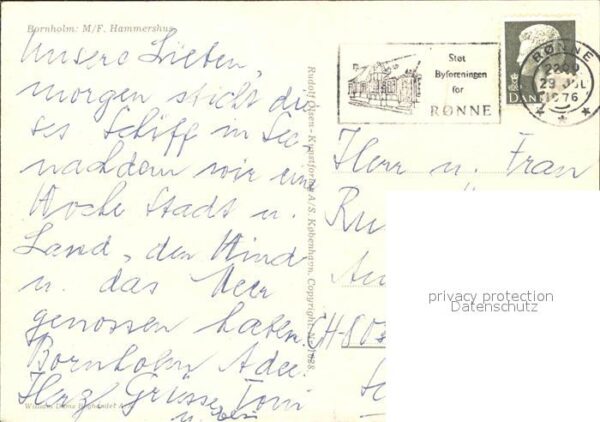 Bornholm: M/F. Hammershus
Unsere Lieben,
morgen sticht die
ses Schiff in See
nachdem wir eine
Woche Stadt u.
Land, den Wind
u. das Meer
genossen haben.
Bornholm Adee.
Herz. Grüsse Toni
u.
Rudolf Olsen - Kunstforlag A/S. København. Copyright
Støt
Byforeningen
for
RØNNE
RØNNE
29 JUL
1976
DAN
Herr u. Frau
Ru
CH-803
privacy protection
Datenschutz